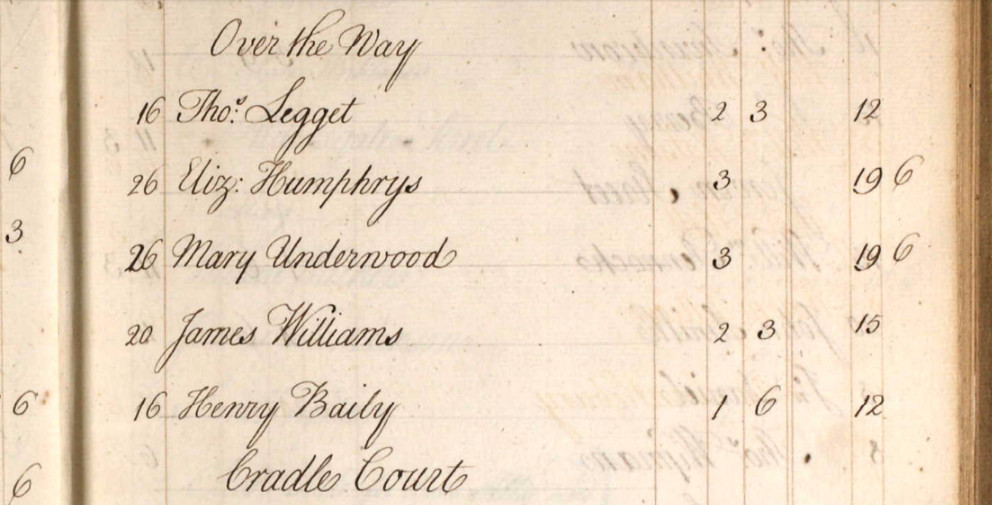 Over the Way
16 Tho.s Legget 2 3 12
6
26 Eliz: Humphrys 3 19 6
3
26 Mary Underwood 3 19 6
20 James Williams 2 3 15
6 16 Henry Baily 1 6 12
6 Cradle Court